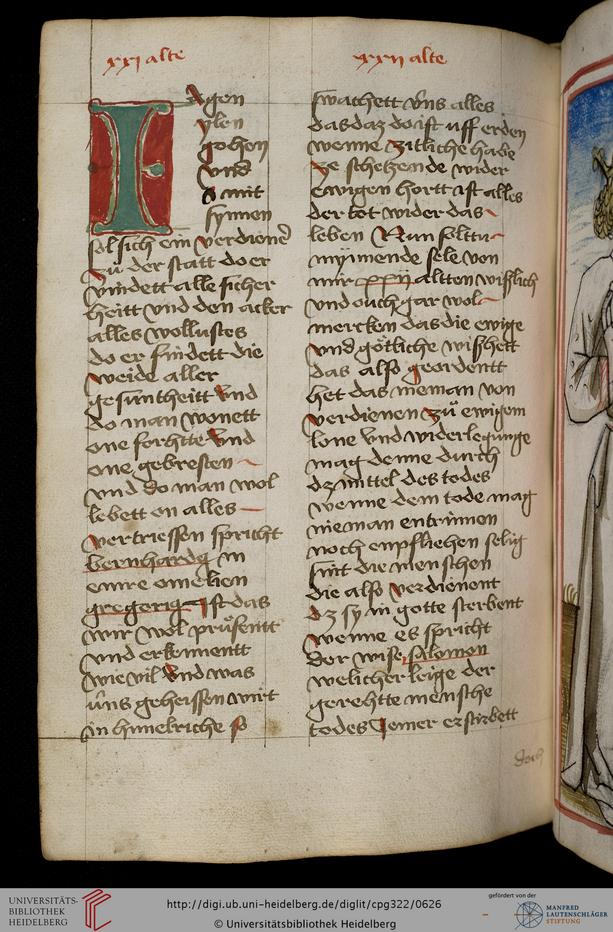 xxj alte
Jagen
ylen
gohen
vnd
da mit
synnen
sol sich ein verdiene
zu der statt do er
vindett alle sicher
heitt vnd den acker
alles wollustes
do er findett die
weide aller
gesuntheitt vnd
do man wonett
one forhtte vnd
one gebresten
vnd do man wol
lebett on alles
vertriessen spricht
bernhardq in
einre omelien
gregeriq Ist das
wir wol prüfentt
vnd erkennentt
wie vil vnd was
vns geheissen wirt
in himelriche so
xxij alte
swachett vns alles
das daz do ist vff erden
wenne zittliche habe
ze schetzende wider
ewigen hortt ist alles
der tot wider das
leben Nun soltu
mynnende sele von
mir xxij altten wislich
vnd ouch gar wol
mercken das die ewige
vnd götliche wißheit
das also geordentt
het das nieman von
verdienen zü ewigem
lone vnd widerlegunge
mag denne durch
dz mittel des todes
wenne dem tode mag
nieman entrinnen
noch enpfliehen selig
sint die menschen
die also verdienent
dz sy in gotte sterbent
wenne es spricht
der wise salomon
welicher leige der
gerehtte mensche
todes Jemer erstirbett
doch
UNIVERSITÄTS-
BIBLIOTHEK
HEIDELBERG
http://digi.ub.uni-heidelberg.de/diglit/cpg322/0626
© Universitätsbibliothek Heidelberg
gefördert von der
MANFRED
LAUTENSCHLÄGER
STIFTUNG